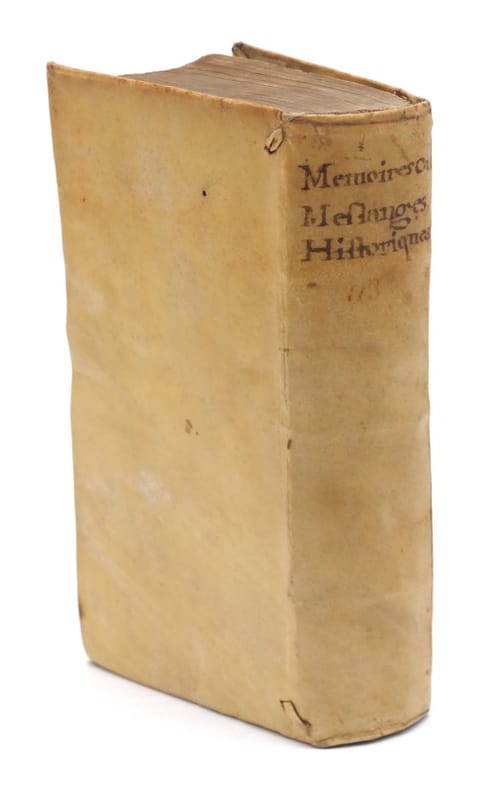 Memoires ou
Meſlanges
Hiſtoriques